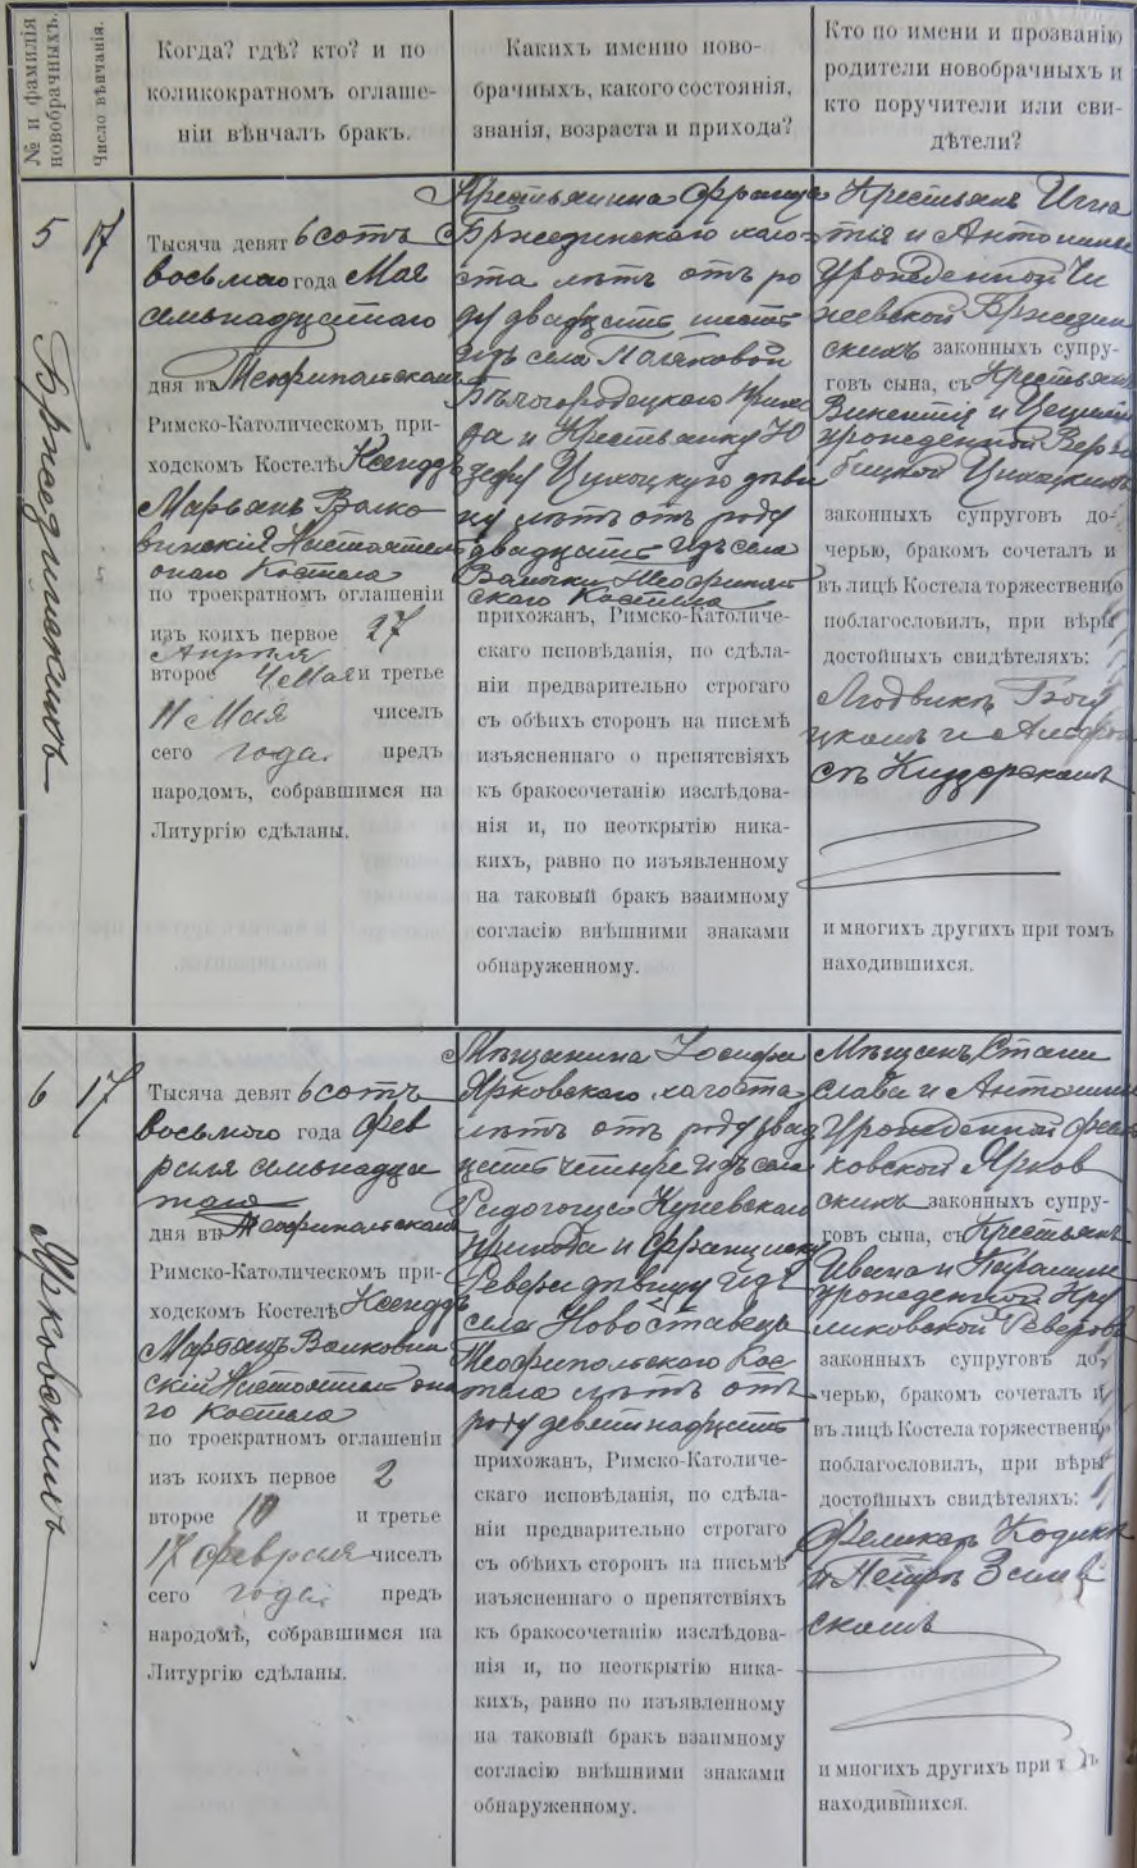 № и фамилія новобрачныхъ.
Число вѣнчанія.
Когда? гдѣ? кто? и по
коликократномъ оглаше-
ніи вѣнчалъ бракъ.
Какихъ именно ново-
брачныхъ, какого состоянія,
званія, возраста и прихода?
Кто по имени и прозванію
родители новобрачныхъ и
кто поручители или сви-
дѣтели?
5
17
Бржезинскихъ
Тысяча девят бсотъ
восьмаго года Мая
семьнадцатаго
дня въ Теофипольскомъ
Римско-Католическомъ при-
ходскомъ Костелѣ Ксендзъ
Марьянъ Валко
винскій Настоятель
онаго Костела
по троекратномъ оглашеніи
изъ коихъ первое 27
Апрѣля
второе 4 Мая и третье
11 Мая чиселъ
сего года предъ
народомъ, собравшимся на
Литургію сдѣланы.
Крестьянина Франца
Бржезинскаго холо
ста лѣтъ отъ ро
ду двадцать шесть
изъ села Поляховой
Бѣлогородецкаго прихо
да и Крестьянку Ю
зефу Цихоцкую дѣви
цу лѣтъ отъ роду
двадцать изъ села
Волички Теофиполь
скаго Костела
прихожанъ, Римско-Католиче-
скаго исповѣданія, по сдѣла-
ніи предварительно строгаго
съ обѣихъ сторонъ на письмѣ
изъясненнаго о препятсвіяхъ
къ бракосочетанію изслѣдова-
нія и, по неоткрытію ника-
кихъ, равно по изъявленному
на таковый бракъ взаимному
согласію внѣшними знаками
обнаруженному.
Крестьянъ Игна
тія и Антонины
урожденной
Бржезин
скихъ законныхъ супру-
говъ сына, съ Крестьянъ
Викентія и
урожденной Верж
бицкой Цихоцкихъ
законныхъ супруговъ до-
черью, бракомъ сочеталъ и
въ лицѣ Костела торжественно
поблагословилъ, при вѣры
достойныхъ свидѣтеляхъ:
Людвикъ
и
съ
и многихъ другихъ при томъ
находившихся.
6
17
Ярковскихъ
Тысяча девят бсотъ
восьмого года Фев
раля семьнадца
таго
дня въ Теофипольскомъ
Римско-Католическомъ при-
ходскомъ Костелѣ Ксендзъ
Марьянъ Валковин
скій Настоятель она
го Костела
по троекратномъ оглашеніи
изъ коихъ первое 2
второе 10 и третье
17 Февраля чиселъ
сего года предъ
народомъ, собравшимся на
Литургію сдѣланы.
Мѣщанина Іосифа
Ярковскаго холоста
лѣтъ отъ роду двад
цать четыре изъ села
Радогощи Куневскаго
прихода и Франциску
Реверу дѣвицу изъ
села Новоставецъ
Теофипольскаго Кос
тела лѣтъ отъ
роду девятнадцать
прихожанъ, Римско-Католиче-
скаго исповѣданія, по сдѣла-
ніи предварительно строгаго
съ обѣихъ сторонъ на письмѣ
изъясненнаго о препятствіяхъ
къ бракосочетанію изслѣдова-
нія и, по неоткрытію ника-
кихъ, равно по изъявленному
на таковый бракъ взаимному
согласію внѣшними знаками
обнаруженному.
Мѣщанъ Стани
слава и Антонины
урожденной
ковской Ярков
скихъ законныхъ супру-
говъ сына, съ Крестьянъ
Ивана и
урожденной Кру
ликовской Реверовъ
законныхъ супруговъ до-
черью, бракомъ сочеталъ и
въ лицѣ Костела торжественно
поблагословилъ, при вѣры
достойныхъ свидѣтеляхъ:
Феликсъ
и Петръ
скомъ
и многихъ другихъ при
находившихся.